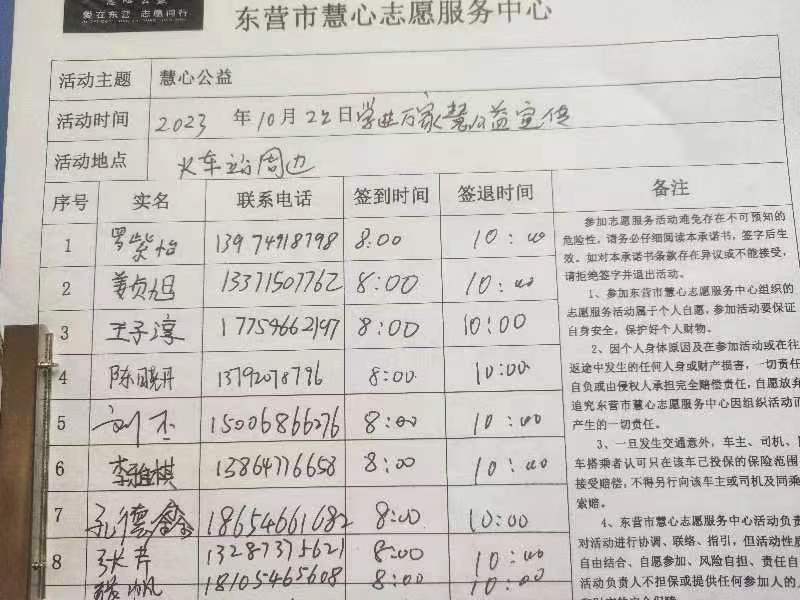 爱在东营 志愿同行
东营市慧心志愿服务中心
活动主题 慧心公益
活动时间 2023 年10月22日学进万家慧公益宣传
活动地点 火车站周边
序号 实名 联系电话 签到时间 签退时间 备注
1 罗紫怡 13974918798 8:00 10:00
2 姜贞旭 13371507762 8:00 10:00
3 王子淳 17759662197 8:00 10:00
4 陈晓丹 13792078776 8:00 10:00
5 刘杰 15006866276 8:00 10:00
6 李雅棋 13864776658 8:00 10:00
7 孔德鑫 18654661682 8:00 10:00
8 张芹 13287375621 8:00 10:00
帆 18105465608 8:00 10:00
参加志愿服务活动难免存在不可预知的
危险性,请务必仔细阅读本承诺书,签字后生
效。如对本承诺书条款存在异议或不能接受,
请拒绝签字并退出活动。
1、参加东营市慧心志愿服务中心组织的
志愿服务活动属于个人自愿,参加活动要保证
自身安全,保护好个人财物。
2、因个人身体原因及在参加活动或在往
返途中发生的任何人身或财产损害,一切责任
自负或由侵权人承担完全赔偿责任,自愿放弃
追究东营市慧心志愿服务中心因组织活动而
产生的一切责任。
3、一旦发生交通意外,车主、司机、
车搭乘者认可只在该车已投保的保险范围
接受赔偿,不得另行向该车主或司机及同乘
索赔。
4、东营市慧心志愿服务中心活动负责
对活动进行协调、联络、指引,但活动性质
自由结合、自愿参加、风险自担、责任自
活动负责人不担保或提供任何参加人的人